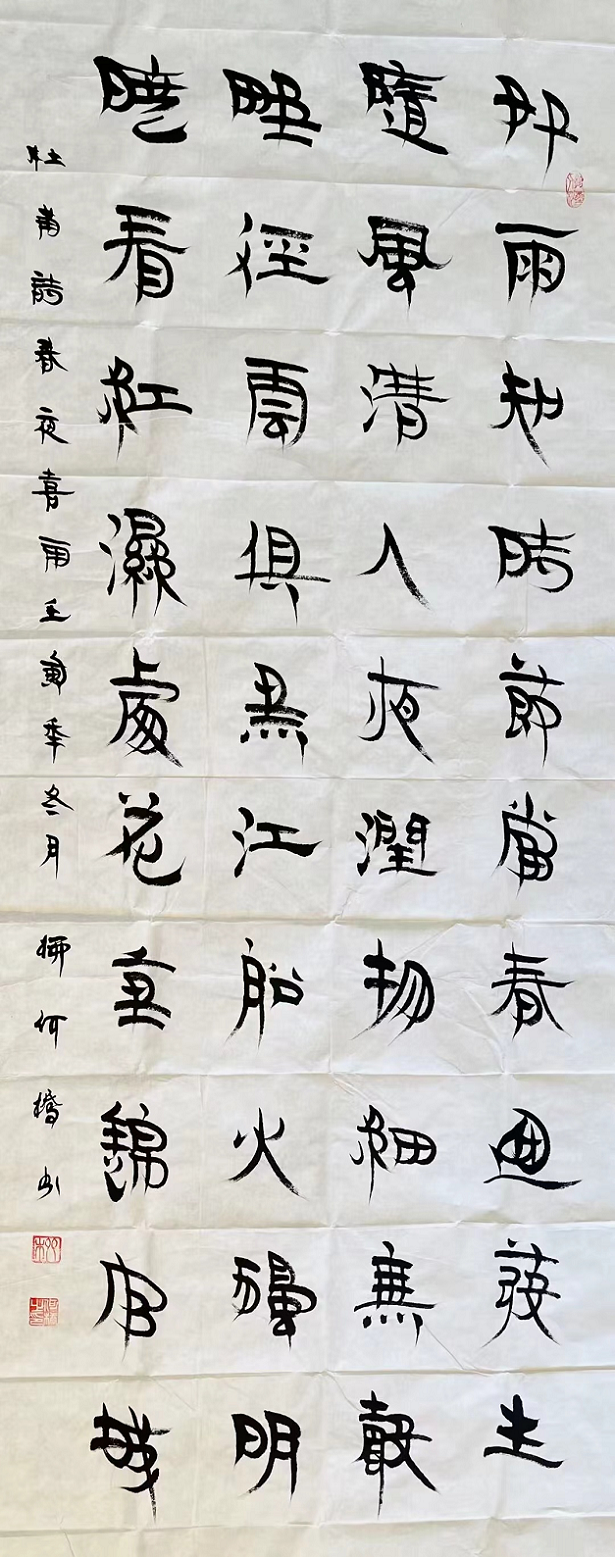 好雨知時節當春迺發生
隨風潛入夜潤物細無聲
野徑雲俱黑江船火獨明
曉看紅濕處花重錦官城
杜甫詩春夜喜雨壬寅季冬月